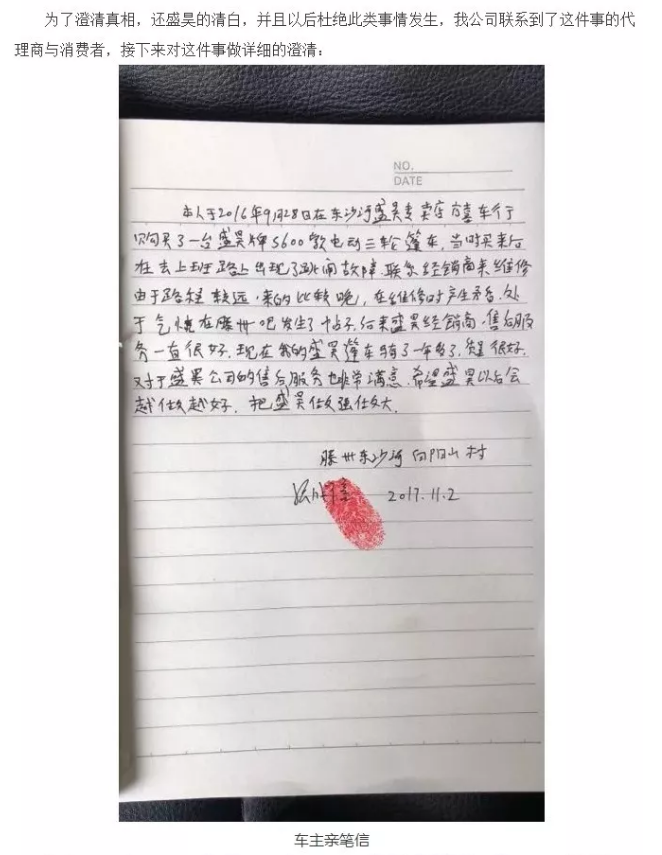 为了澄清真相，还盛昊的清白，并且以后杜绝此类事情发生，我公司联系到了这件事的代
理商与消费者，接下来对这件事做详细的澄清：
NO.
DATE
本人于2016年9月28日在东沙河盛昊专卖店 车行
购买了一台盛昊牌S600款电动三轮篷车，当时买来后
在去上班路上出现了跳闸故障，联系经销商来维修
由于路程较远，来的比较晚，在维修时产生矛盾，处
于气愤在滕州吧发生了帖子，后来盛昊经销商，售后服
务一直很好，现在我的盛昊篷车骑了一年多了，很好。
对于盛昊公司的售后服务也非常满意，希望盛昊以后会
越做越好，把盛昊做强做大。
滕州东沙河向阳山村
2017.11.2
车主亲笔信